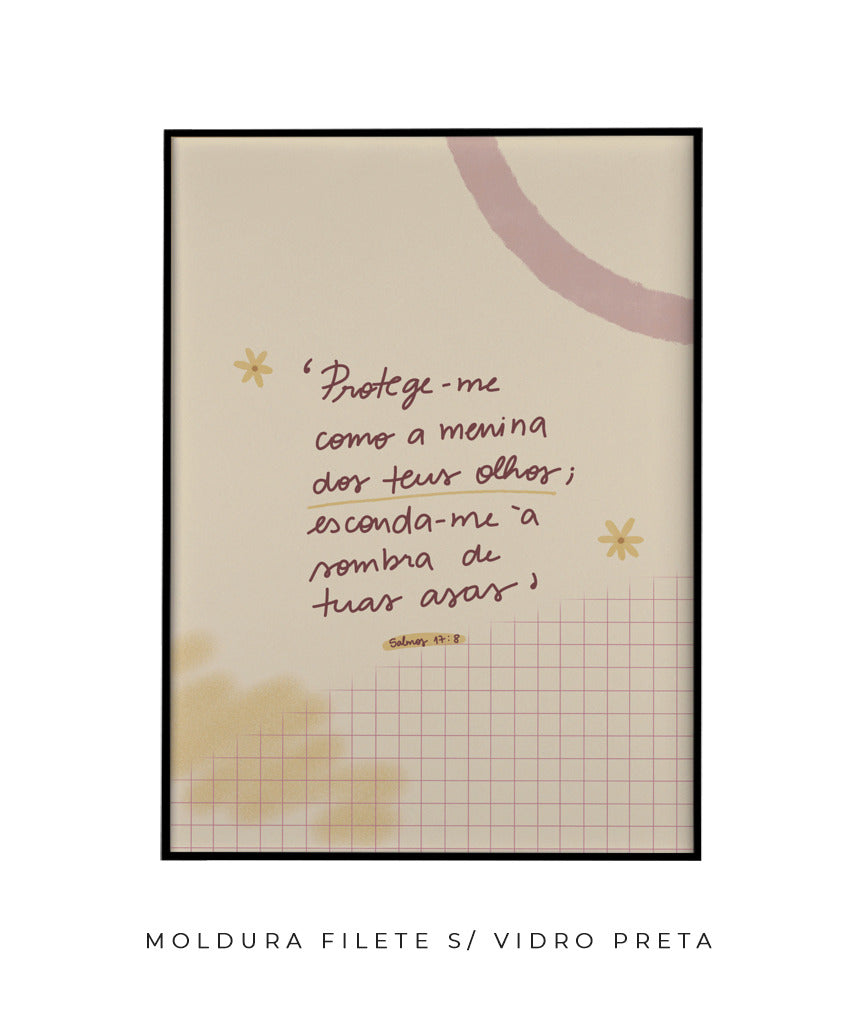 ‘Protege-me
como a menina
dos teus olhos;
esconda-me à
sombra de
tuas asas’
Salmos 17:8
MOLDURA FILETE S/ VIDRO PRETA